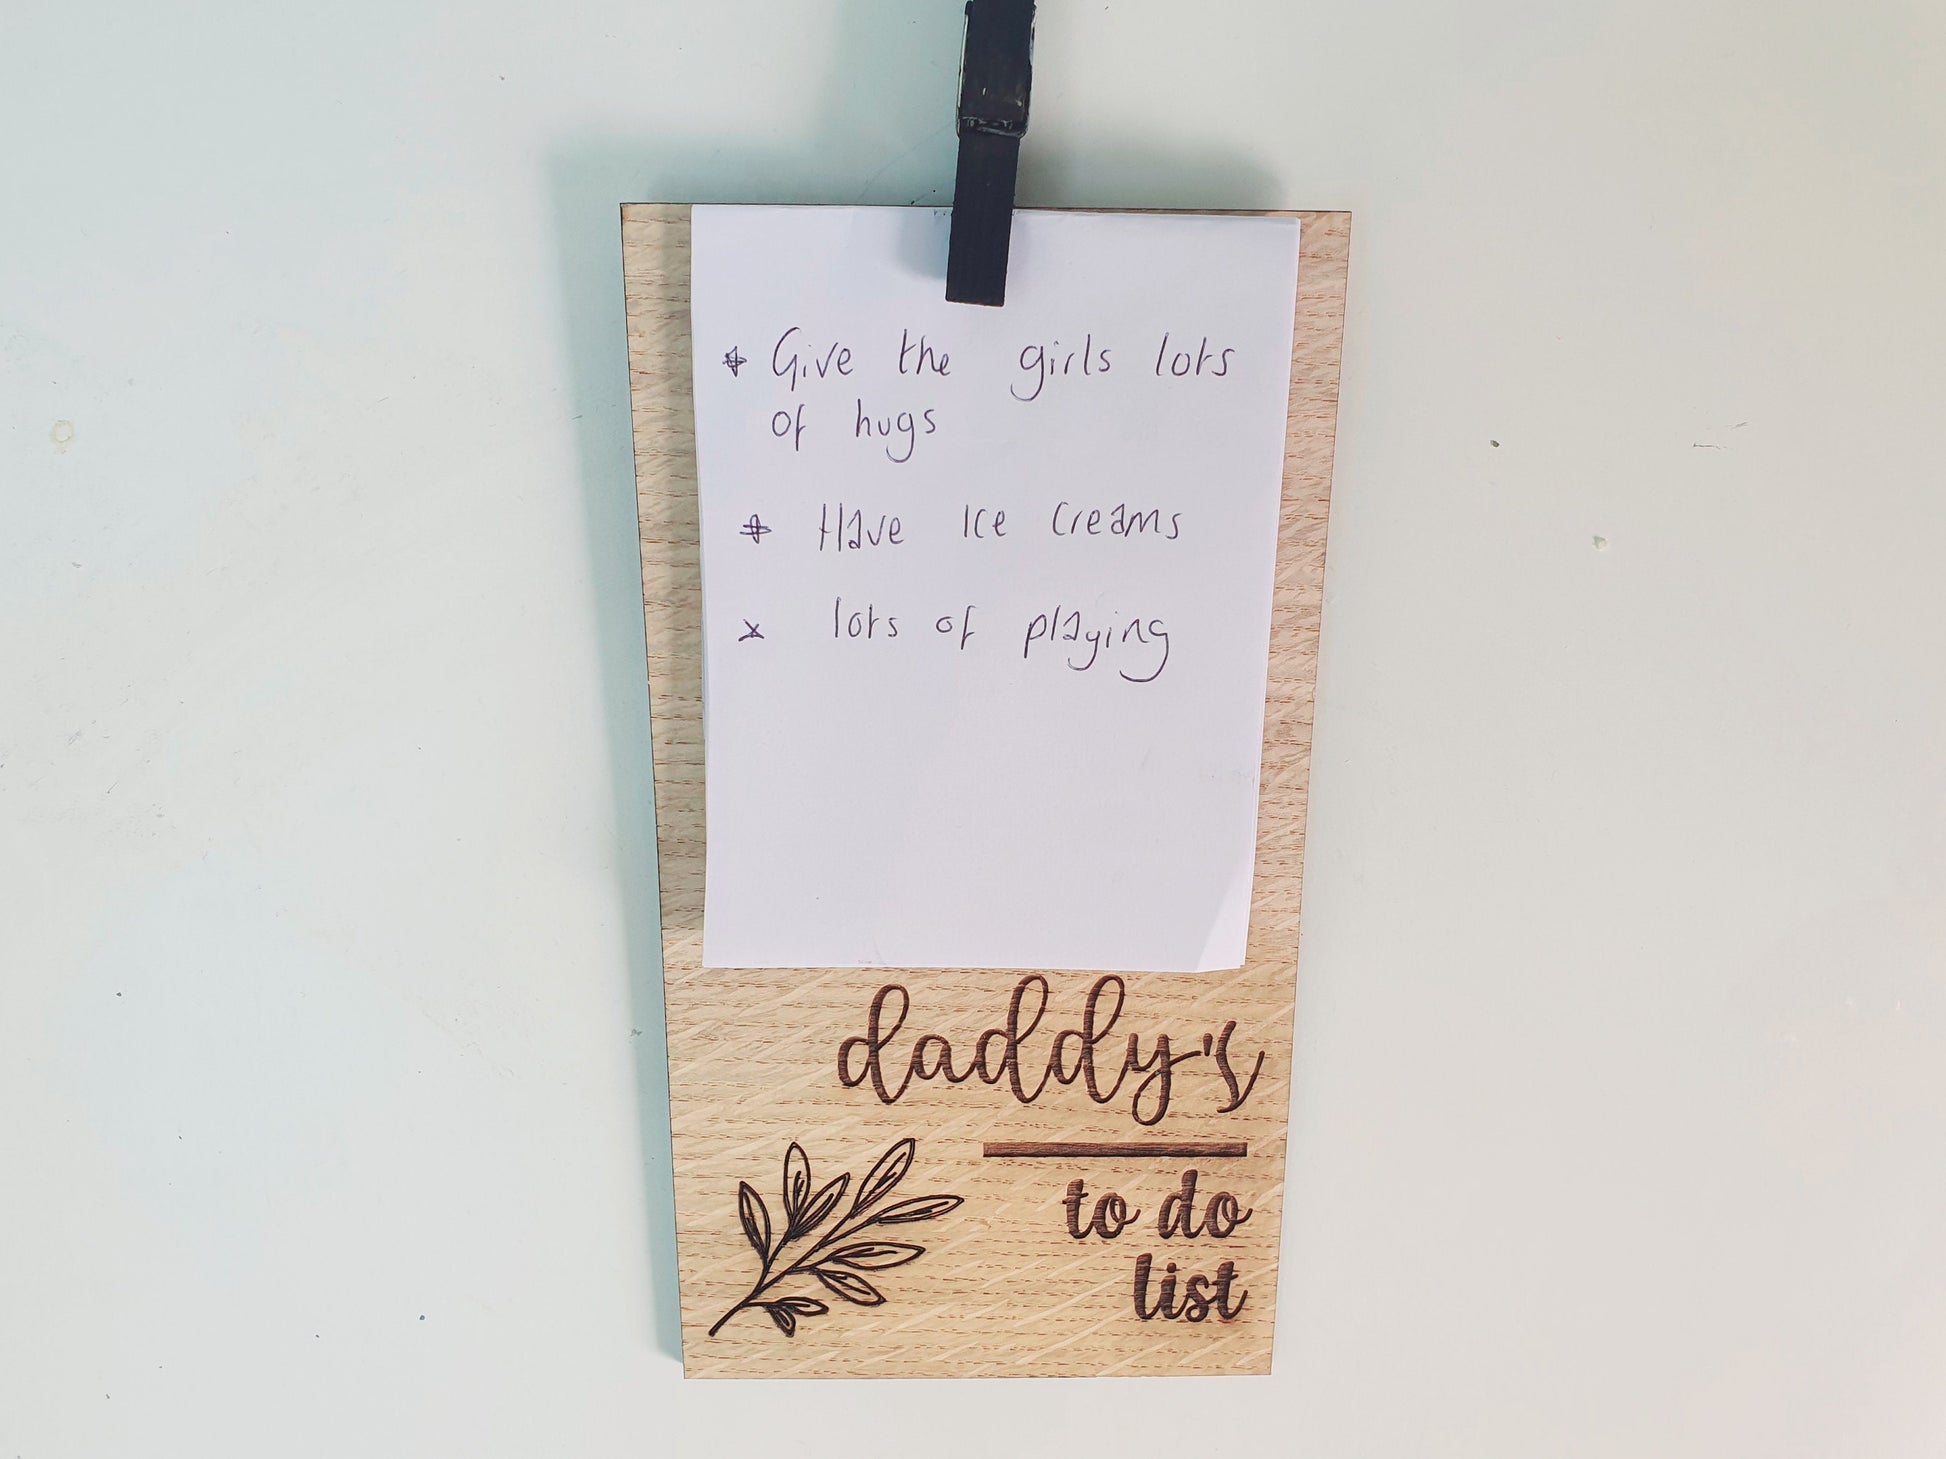 * Give the girls lots
of hugs
* Have Ice Creams
* lots of playing
daddy's
to do
list